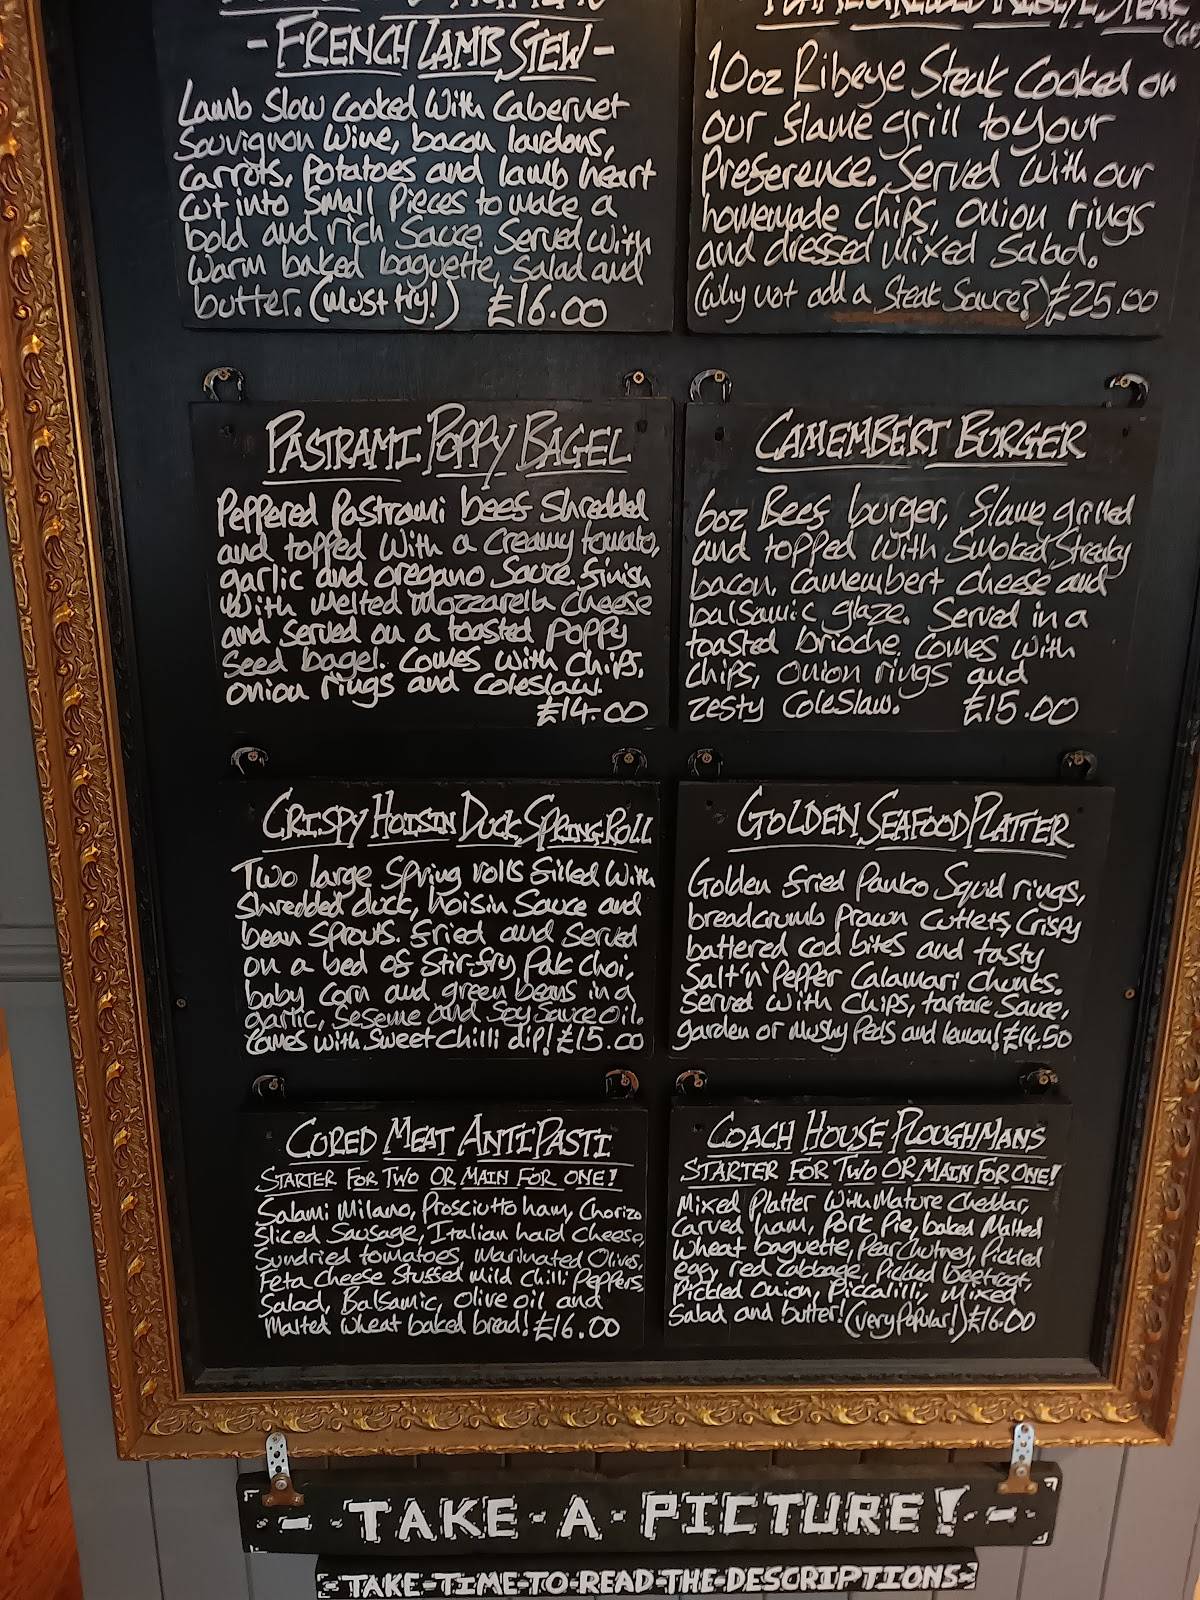 - FRENCH LAMB STEW -
Lamb Slow Cooked With Cabernet
Sauvignon Wine, bacon lardons,
Carrots, Potatoes and lamb heart
cut into Small Pieces to make a
bold and rich Sauce. Served with
warm baked baguette, Salad and
butter. (Must try!) £16.00
RIBEYE STEAK
(GF)
10oz Ribeye Steak Cooked on
our flame grill to your
Preference. Served with our
homemade Chips, onion rings
and dressed mixed Salad.
(Why not add a Steak Sauce?) £25.00
PASTRAMI POPPY BAGEL
Peppered Pastrami beef Shredded
and topped with a creamy tomato,
garlic and oregano Sauce. finish
With melted mozzarella cheese
and served on a toasted poppy
Seed bagel. Comes with chips,
onion rings and coleslaw.
£14.00
CAMEMBERT BURGER
6oz Beef burger, flame grilled
and topped with Smoked Streaky
bacon, Camembert cheese and
balsamic glaze. Served in a
toasted brioche. Comes with
chips, onion rings and
zesty Coleslaw. £15.00
CRISPY HOISIN DUCK SPRING ROLL
Two large Spring rolls filled with
Shredded duck, hoisin Sauce and
bean Sprouts. Fried and Served
on a bed of Stir-fry Pak Choi,
baby Corn and green beans in a
garlic, Seseme and Soy Sauce oil.
Comes with Sweet Chilli dip! £15.00
GOLDEN SEAFOOD PLATTER
Golden fried Panko Squid rings,
breadcrumb Prawn Cutlets, Crispy
battered cod bites and tasty
Salt 'n' Pepper Calamari Chunks.
Served with Chips, tartare Sauce,
garden or mushy Peas and lemon! £14.50
CURED MEAT ANTIPASTI
STARTER FOR TWO OR MAIN FOR ONE!
Salami Milano, Prosciutto ham, Chorizo
Sliced Sausage, Italian hard Cheese,
Sundried tomatoes, Marinated Olives,
Feta Cheese Stuffed Mild Chilli Peppers,
Salad, Balsamic, olive oil and
Malted Wheat baked bread! £16.00
COACH HOUSE PLOUGHMANS
STARTER FOR TWO OR MAIN FOR ONE!
Mixed Platter With Mature Cheddar,
Carved ham, Pork Pie, baked Malted
Wheat baguette, Pear Chutney, Pickled
egg, red Cabbage, Pickled beetroot,
Pickled Onion, Piccalilli, Mixed
Salad and butter! (very Popular!) £16.00
- TAKE - A - PICTURE! -
- TAKE-TIME-TO-READ-THE-DESCRIPTIONS-